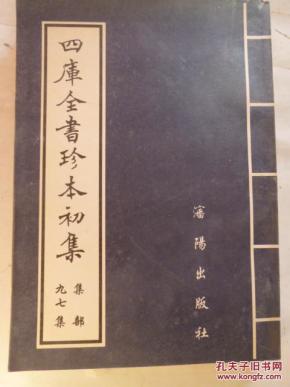 四庫全書珍本初集
集部
九七集
瀋陽出版社
孔夫子旧书网